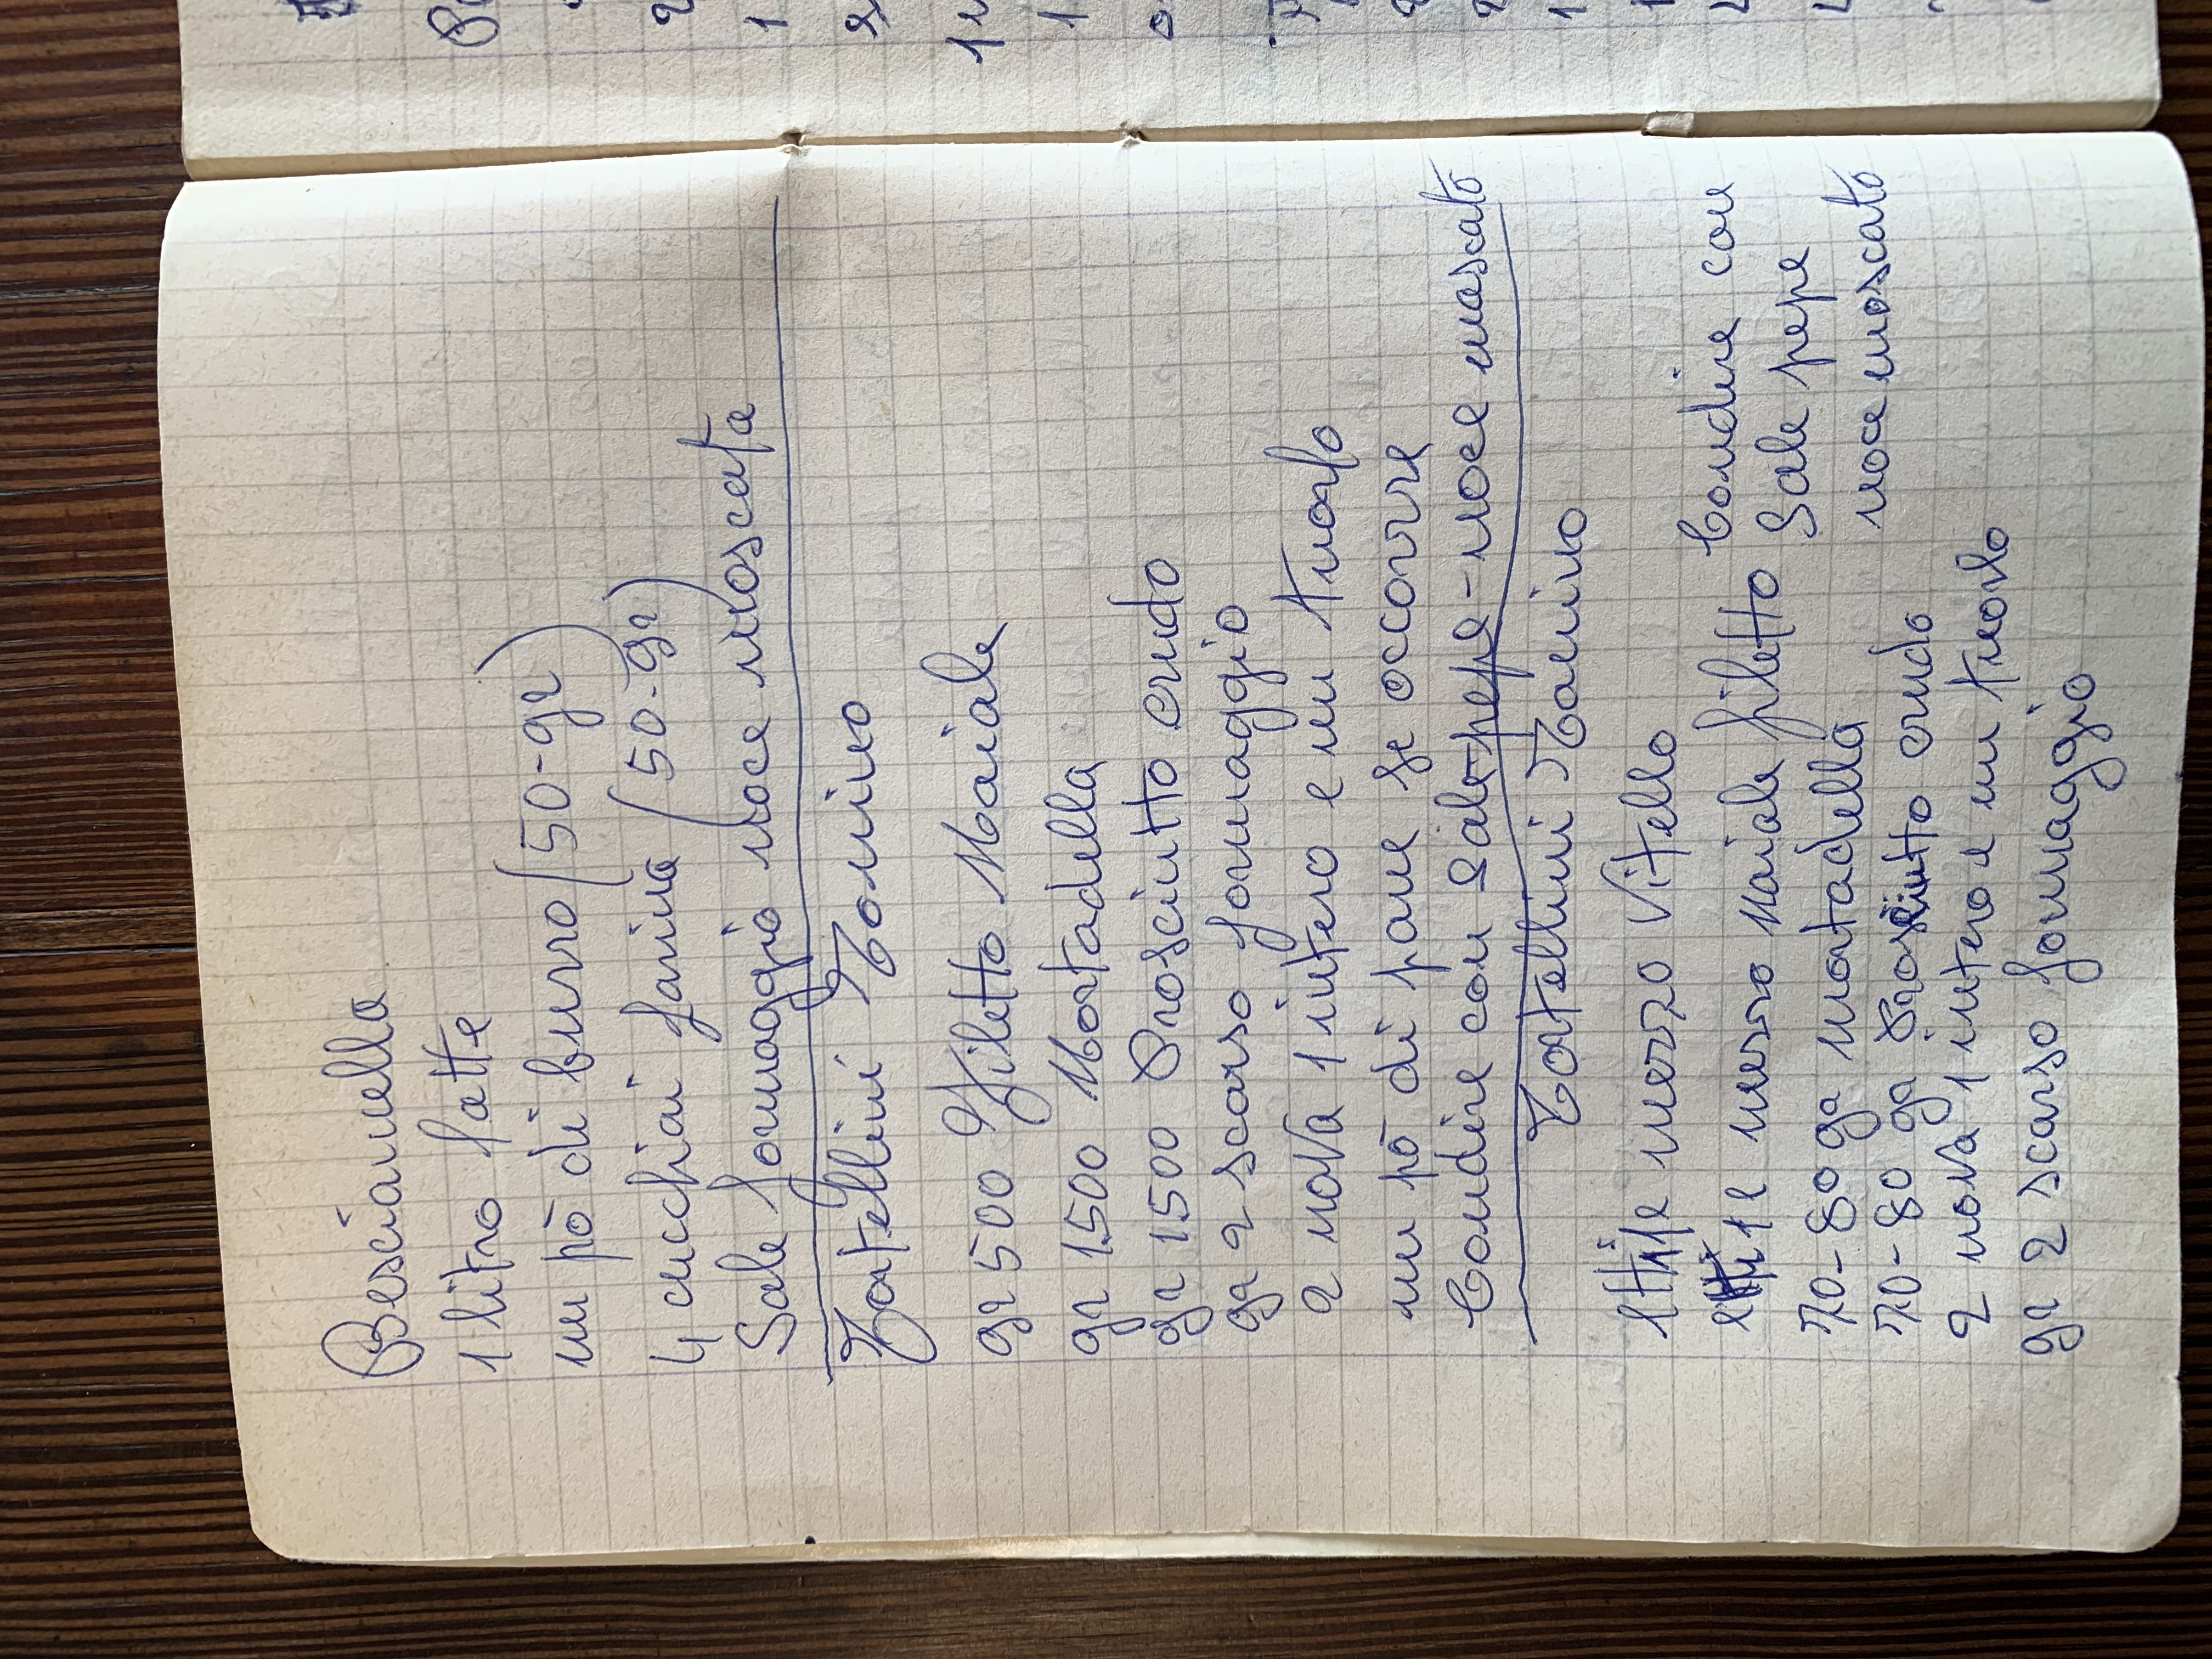 Besciamella
1 litro latte
un pò di burro (50-gr)
4 cucchiai farina (50-gr)
Sale formaggio noce moscata
Tortellini Tonino
gr 500 Filetto Maiale
gr 1.500 Mortadella
gr 1.500 Prosciutto crudo
gr 2 scarso formaggio
2 uova 1 intero e un tuorlo
un pò di pane se occorre
Condire con sale-pepe-noce moscato
Tortellini Tonino
mezzo Vitello
mezzo maiale filetto
70-80 gr mortadella
70-80 gr Prosciutto crudo
2 uova 1 intero e un tuorlo
gr 2 scarso formaggio
Condire con
Sale pepe
noce moscato